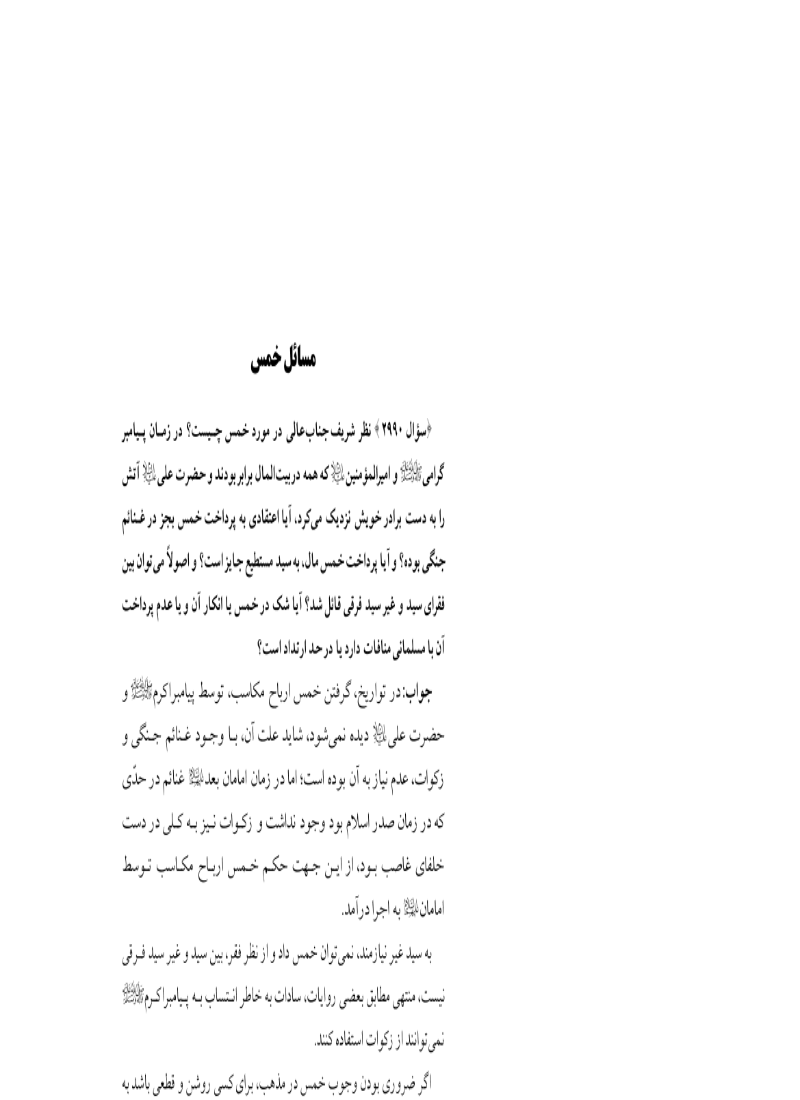 مسائل خمس
﴿سؤال ۲۹۹۰﴾ نظر شریف جناب‌عالی در مورد خمس چـیست؟ در زمـان پـیامبر
گرامیﷺ و امیرالمؤمنین؏ که همه در بیت‌المال برابر بودند و حضرت علی؏ آتش
را به دست برادر خویش نزدیک می‌کرد، آیا اعتقادی به پرداخت خمس بجز در غـنائم
جنگی بوده؟ و آیا پرداخت خمس مال، به سید مستطیع جایز است؟ و اصولاً می‌توان بین
فقرای سید و غیر سید فرقی قائل شد؟ آیا شک در خمس یا انکار آن و یا عدم پرداخت
آن با مسلمانی منافات دارد یا در حد ارتداد است؟
جواب: در تواریخ، گرفتن خمس ارباح مکاسب، توسط پیامبر اکرمﷺ و
حضرت علی؏ دیده نمی‌شود، شاید علت آن، بـا وجـود غـنائم جـنگی و
زکوات، عدم نیاز به آن بوده است؛ اما در زمان امامان بعد غنائم در حدّی
که در زمان صدر اسلام بود وجود نداشت و زکـوات نـیز بـه کـلی در دست
خلفای غاصب بـود، از ایـن جـهت حکـم خـمس اربـاح مکـاسب تـوسط
امامان به اجرا درآمد.
به سید غیر نیازمند، نمی‌توان خمس داد و از نظر فقر، بین سید و غیر سید فـرقی
نیست، منتهی مطابق بعضی روایات، سادات به خاطر انـتساب بـه پـیامبر اکـرمﷺ
نمی‌توانند از زکوات استفاده کنند.
اگر ضروری بودن وجوب خمس در مذهب، برای کسی روشن و قطعی باشد به